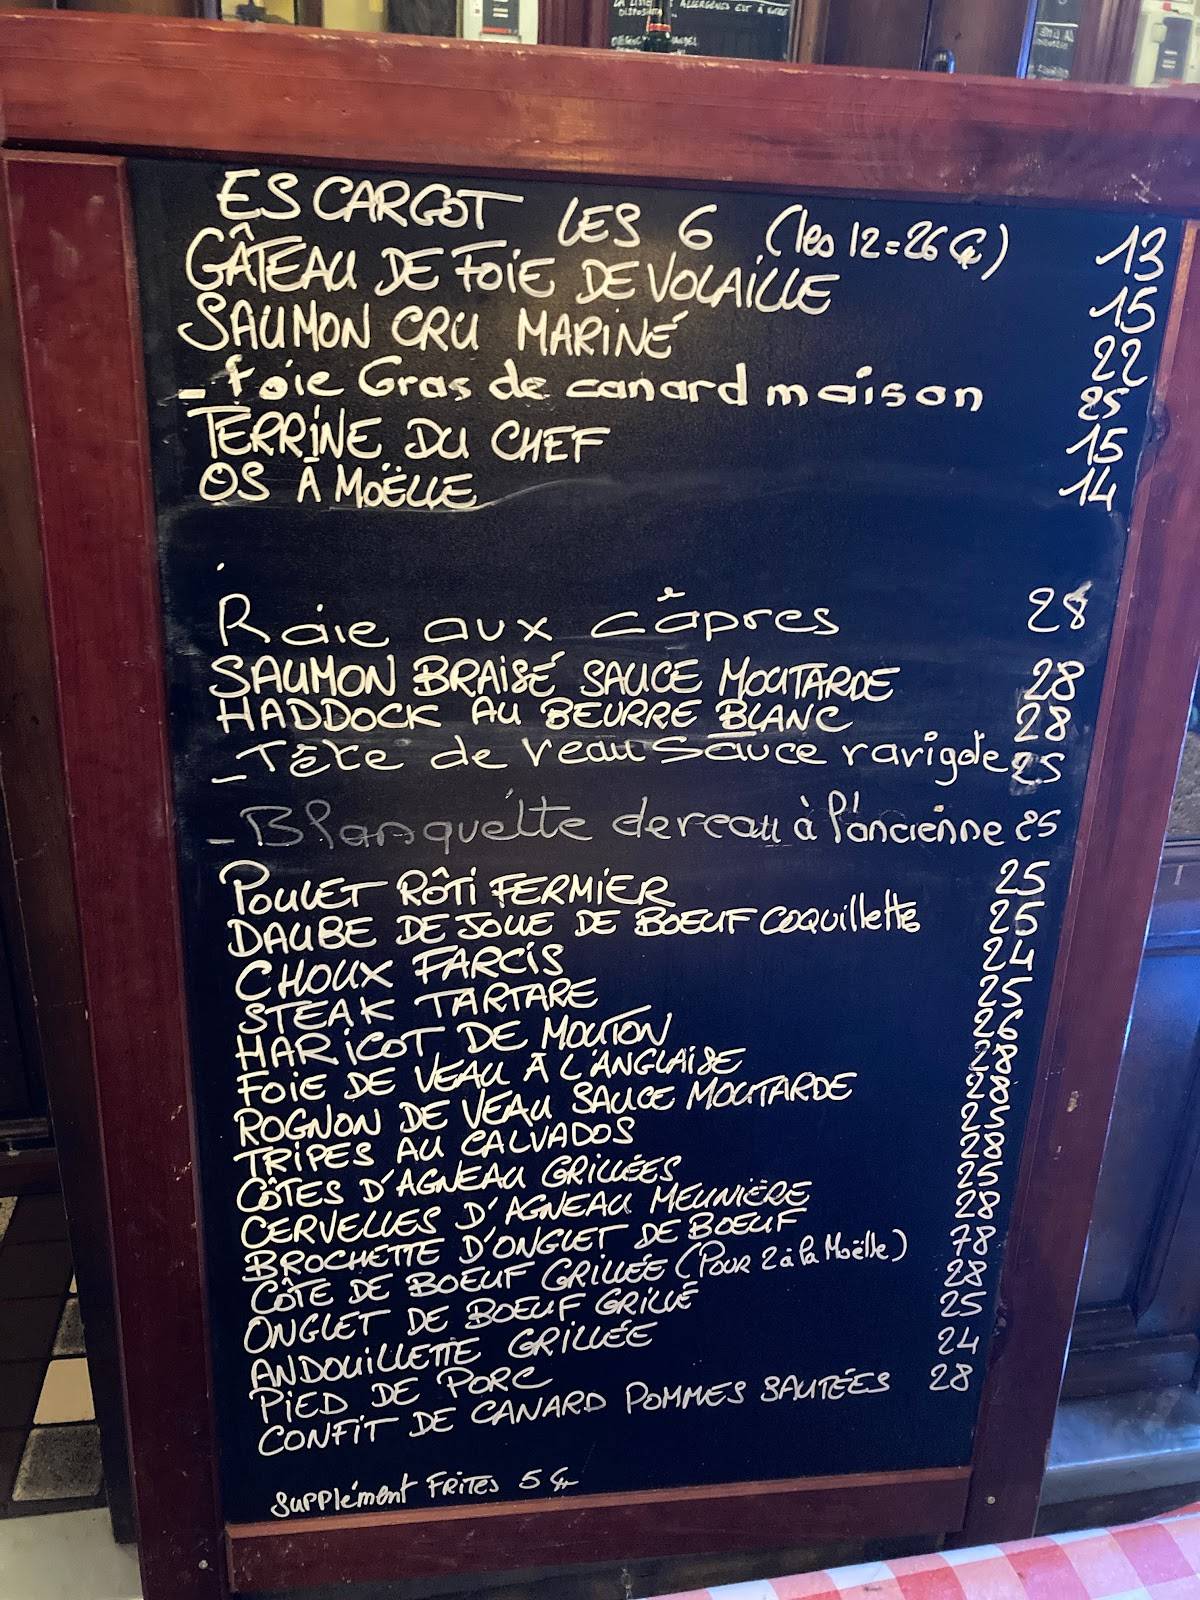 LA LISTE
ALLERGÈNES EST À VOTRE
DISPOSITION
ESCARGOT LES 6 (les 12=26€) 13
GÂTEAU DE FOIE DE VOLAILLE 15
SAUMON CRU MARINÉ 22
- foie Gras de canard maison 25
TERRINE DU CHEF 15
OS À MOËLLE 14
Raie aux câpres 28
SAUMON BRAISÉ SAUCE MOUTARDE 28
HADDOCK AU BEURRE BLANC 28
- Tête de veau Sauce ravigote 25
- Blanquette de veau à l'ancienne 25
POULET RÔTI FERMIER 25
DAUBE DE JOUE DE BOEUF COQUILLETTE 25
CHOUX FARCIS 24
STEAK TARTARE 25
HARICOT DE MOUTON 26
FOIE DE VEAU À L'ANGLAISE 28
ROGNON DE VEAU SAUCE MOUTARDE 28
TRIPES AU CALVADOS 25
CÔTES D'AGNEAU GRILLÉES 28
CERVELLES D'AGNEAU MEUNIÈRE 25
BROCHETTE D'ONGLET DE BOEUF 28
CÔTE DE BOEUF GRILLÉE (POUR 2 à la Moëlle) 78
ONGLET DE BOEUF GRILLÉ 28
ANDOUILLETTE GRILLÉE 25
PIED DE PORC 24
CONFIT DE CANARD POMMES SAUTÉES 28
Supplément FRITES 5 €